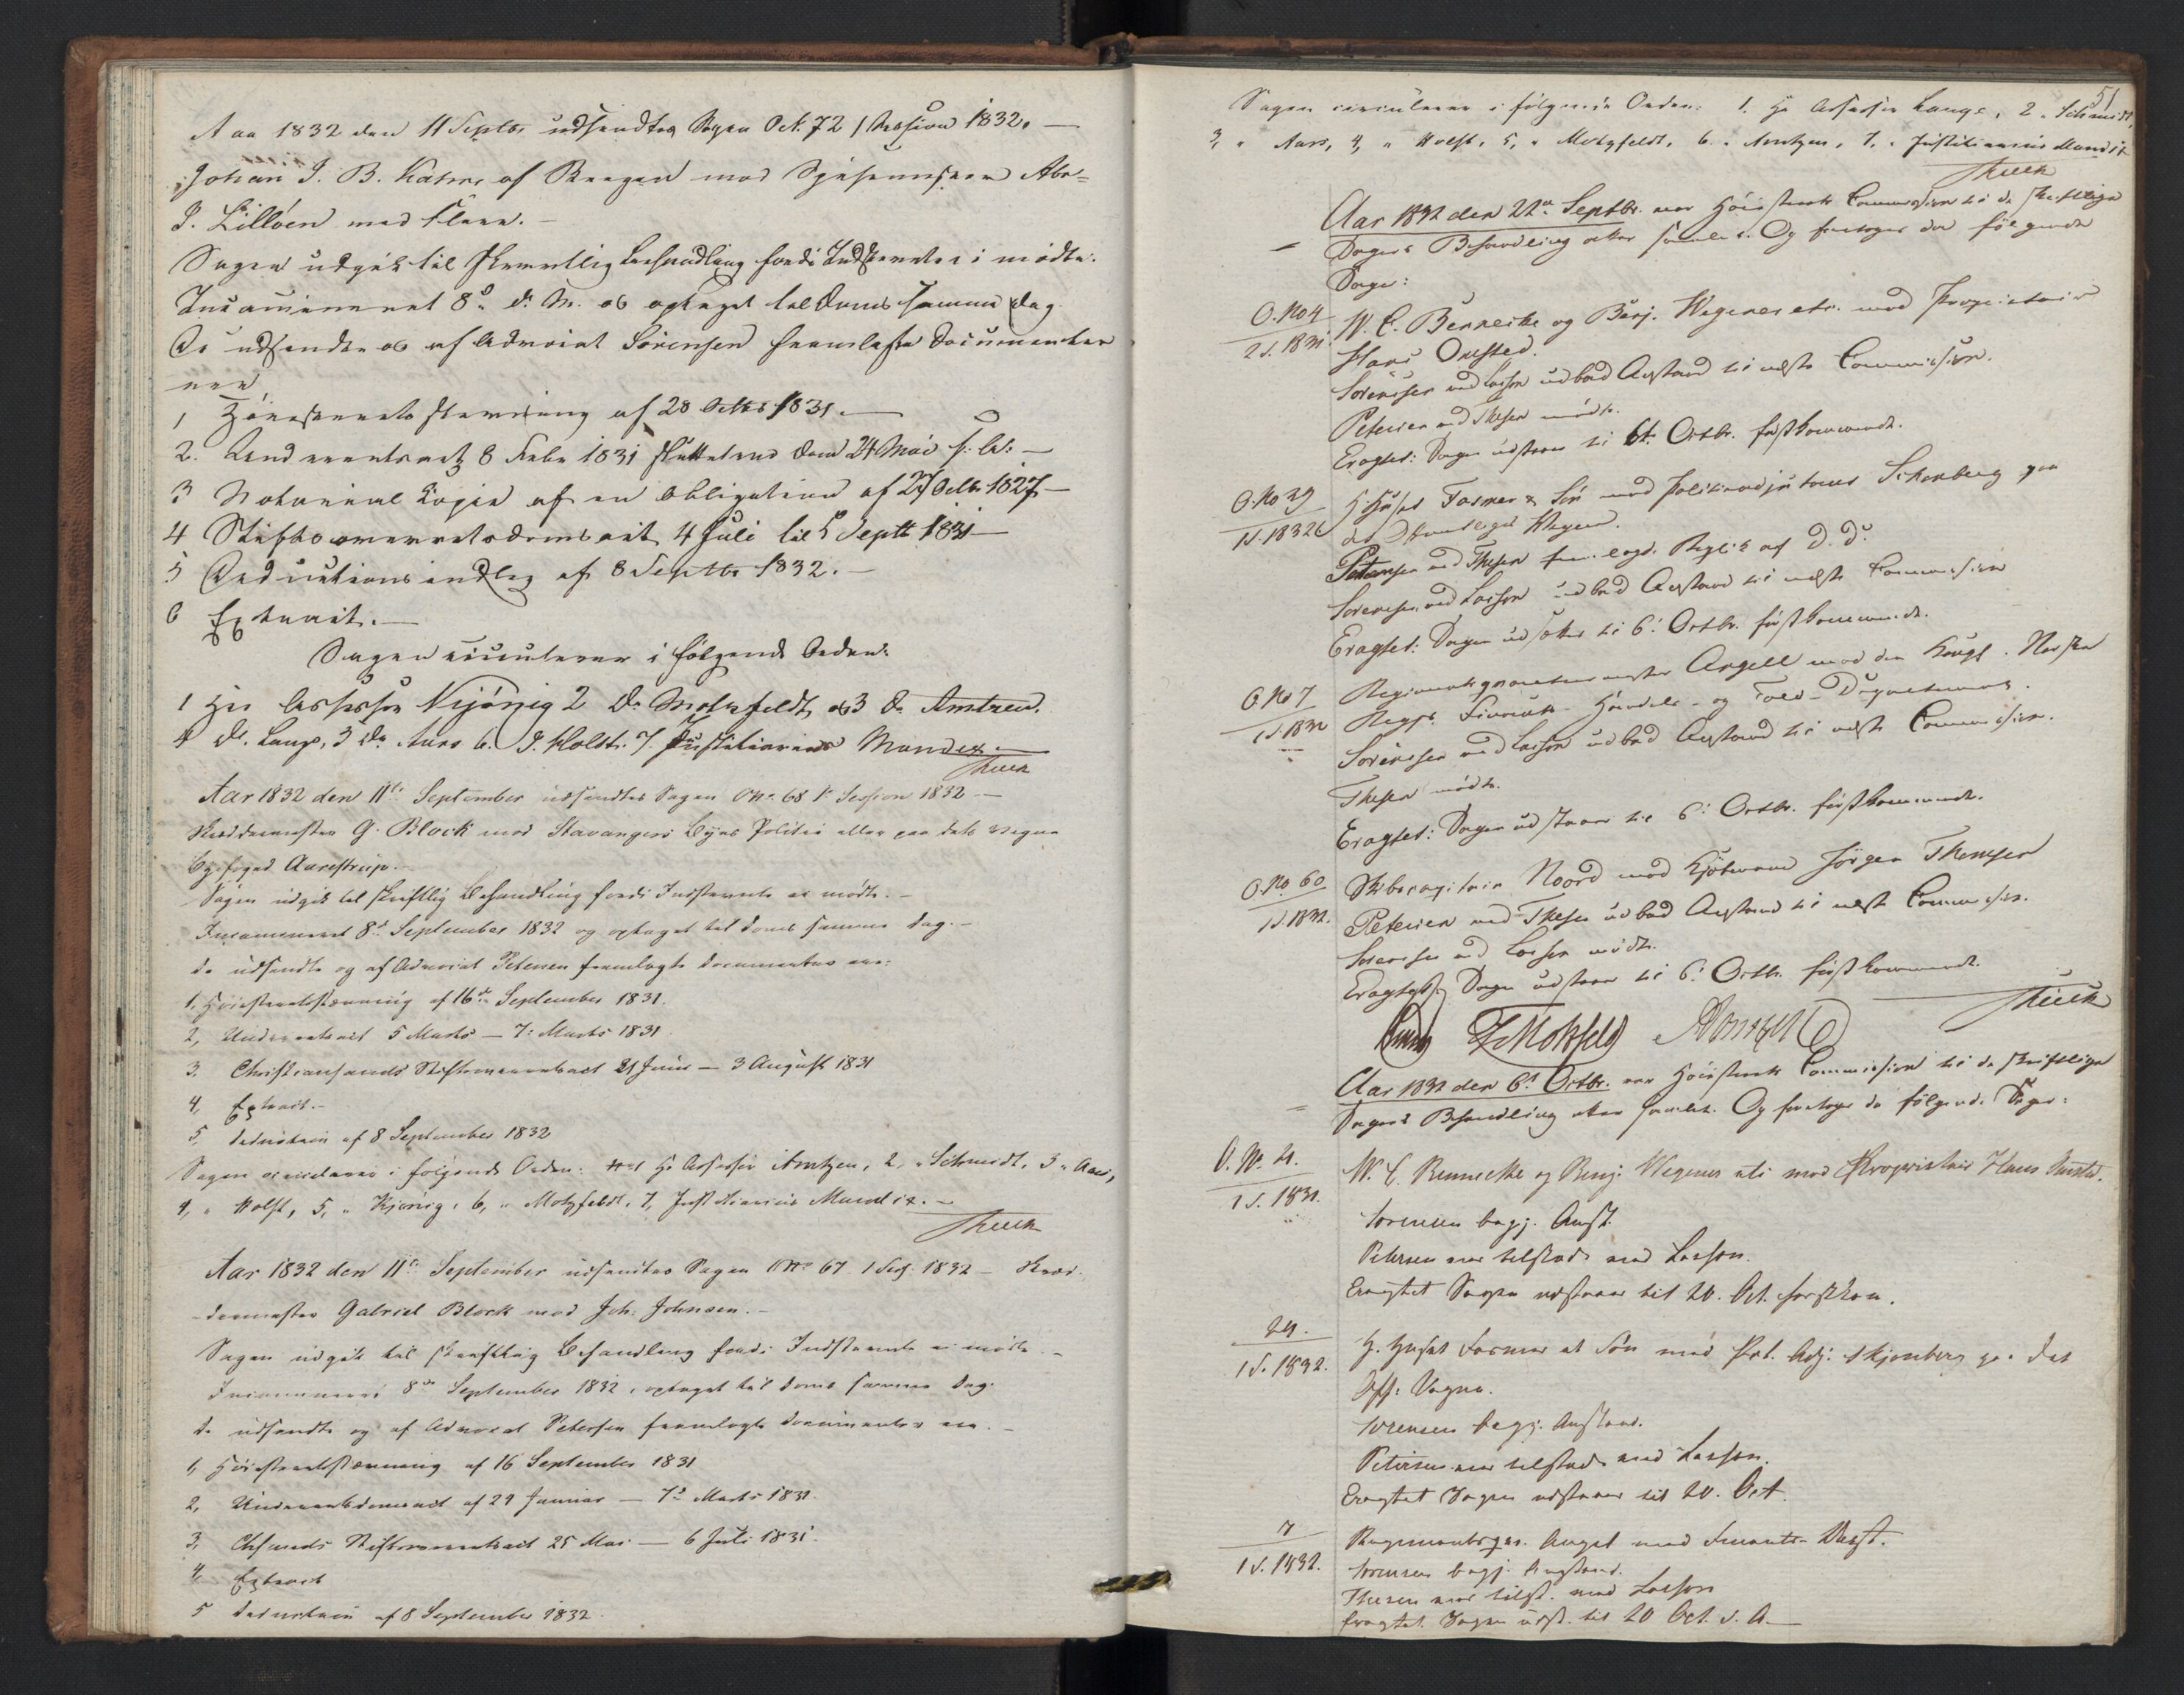 Aar 1832 den 11 Septbr udsendtes Sagen O.N. 72 1 Session 1832. —
Johan J. B. Kahrs af Bergen mod Abr=
P. Lilloen med flere. —
Sagen udgik til skrevtlig Behandling fordi Indstevnte ei mødte.
Incamineret 8de d. M. og optaget til Doms samme Dag
De udsendte og af Advocat Sörensen fremlagte Documenter
ere
1 Høiesteretsstevning af 28 Octbr 1831. —
2. Underretsact 8 Febr 1831 sluttet 24 Mai s. A. —
3 Notarial Copie af en Obligation af 27 Octbr 1827 —
4 Stiftsoverretsdomsact 4 Juli til 5 Septb 1831 —
5 Deductionsindlæg af 8 Septbr 1832. —
6 Extract. —
Sagen circulerer i følgende Orden:
1 Hr Assessor Kjönig 2 Do Motzfeldt, 3 Do Arntzen.
4 Do. Lange, 5 Do Aars 6. D. Holst. 7. Justitiarius Mandix. —
Aar 1832 den 11te September udsendtes Sagen O No. 68 1 Session 1832 —
G. Block mod Stavangers Byes Politie eller paa dets Vegne
Byefoged Aarestrup. —
Sagen udgik til skriftlig Behandling fordi Indstevnte ei mødte. —
Incamineret 8de September 1832 og optaget til Doms samme Dag. —
De udsendte og af Advocat Petersen fremlagte Documenter ere:
1. Høiesteretsstævning af 16de September 1831.
2, Underretsact 5 Marts — 7: Marts 1831
3. Christiansands Stiftsoverretsact 21 Juni — 3 August 1831
4, Extract. —
5, Deduction af 8 September 1832
Sagen circulerer i følgende Orden: 1 Hr Assessor Arntzen, 2, " Schmidt, 3 " Aars,
4, " Holst, 5, " Kjönig, 6, " Motzfeldt, 7, Justitiarius Mandix. —
Aar 1832 den 11te September udsendtes Sagen O No 67 1 Sess. 1832 —
Gabriel Block mod Joh. Johnsen. —
Sagen udgik til skriftlig Behandling fordi Indstevnte ei mødte. —
Incamineret 8de September 1832, optaget til Doms samme Dag.
De udsendte og af Advocat Petersen fremlagte Documenter ere. —
1, Høiesteretsstævning af 16 September 1831
2, Underretsdomsact af 29 Januar — 7de Marts 1831.
3, Chrsands Stiftsoverretsact 25 Mai — 6 Juli 1831.
4, Extract
5 Deduction af 8 September 1832.
51
Sagen circulerer i følgende Orden: 1. Hr Assessor Lange, 2 " Schmidt,
3, " Aars, 4, " Holst, 5, " Motzfeldt, 6. " Arntzen, 7, " Justitiarius Mandix
Aar 1832 den 22de Septbr. var Høiesterets Commission til de skriftlige
Sagers Behandling atter samlet. Og foretoges da følgende
Sager:
O. No 4
2 S. 1831.
W. C. Bennecke og Benj. Wegener etc. mod Proprietair
Hans Onsted.
Sörensen ved Lasson udbad Anstand til næste Commission.
Petersen ved Thesen mødte.
Eragtet: Sagen udstaaer til 6te Octbr. førstkommende.
O. No 29
1 S. 1832
H. Huset Fasmer & Sön mod Politieadjutant Schonberg paa
det Offentliges Vegne.
Petersen ved Thesen fremlagde Replik af D. D.
Sörensen ved Lasson udbad Anstand til næste Commission
Eragtet: Sagen udsættes til 6: Octbr. førstkommende.
O. No 7
1 S. 1832
Regimentsqvarteermester Angell mod den Kongl. Norske
Regjs. Finants- Handels- og Told-Departement.
Sörensen ved Lasson udbad Anstand til næste Commission.
Thesen mødte.
Eragtet: Sagen udstaaer til 6: Octbr. førstkommende.
O. No 60
1 S. 1832.
Skibscapitain Noord mod Kjøbmand Jörgen Thomsen
Petersen ved Thesen udbad Anstand til næste Commission.
Sörensen ved Lasson mødte.
Eragtet: Sagen udstaaer til 6: Octbr. førstkommende.
Motzfeldt Arntzen
Aar 1832 den 6te Octbr. var Høiesterets Commission til de skriftlige
Sagers Behandling atter samlet. Og foretoges da følgende Sager:
O. No. 4.
2 S. 1831.
W. C. Bennecke og Benj. Wegener etc mod Proprietair Hans Onsted.
Sörensen begj. Anst.
Petersen var tilstede ved Lasson.
Eragtet Sagen udstaaer til 20. Oct. førstkom.
29.
1 S. 1832.
H. Huset Fasmer et Søn mod Pol. Adj. Skjonberg paa det
Off: Vegne.
Sörensen begj. Anstand.
Petersen var tilstede ved Lasson.
Eragtet Sagen udstaaer til 20. Oct.
7
1 S. 1832.
Regimentsqm. Angel mod Finants-Dept.
Sörensen begj. Anstand.
Thesen var tilst. ved Lasson
Eragtet. Sagen udst. til 20 Oct. d. A. —